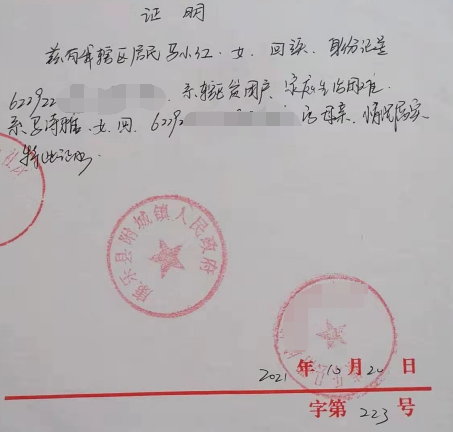 证 明
兹有我辖区居民马小红、女、回族、身份证是
622922 系 户、家庭生活困难
系马 、女、回、62292 的母亲、情况属实
特此证明.
康乐县附城镇人民政府
2021年10月20日
字第223号